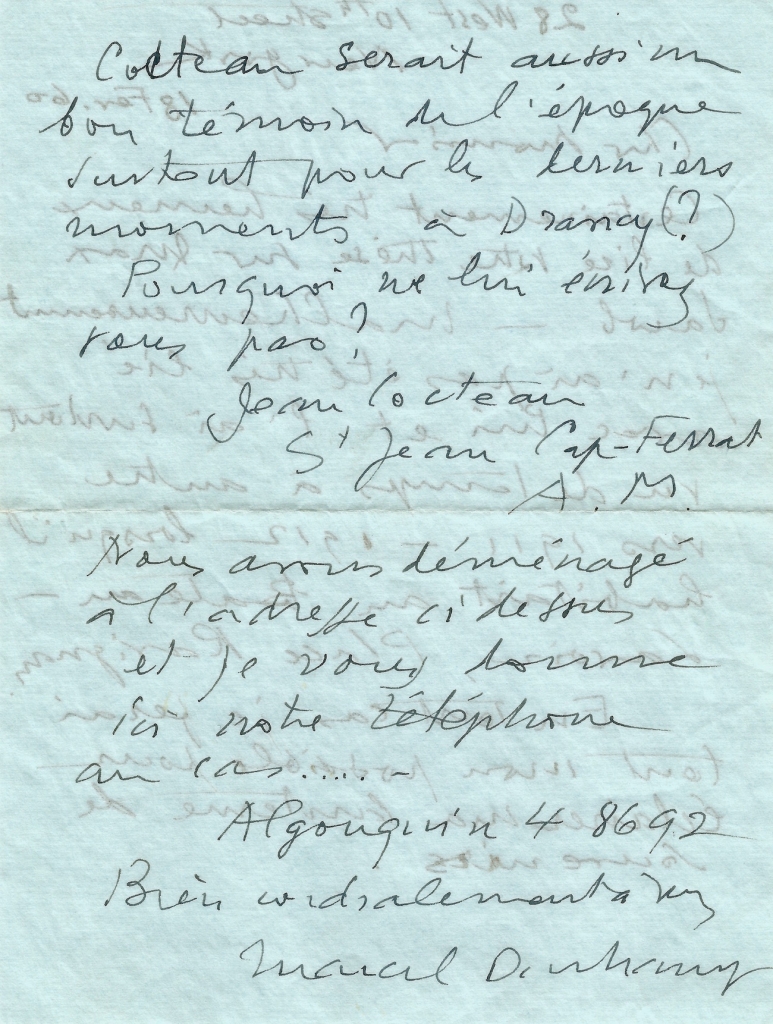 Cocteau serait aussi un
bon témoin de l'époque
surtout pour les derniers
moments à Drancy (?)
Pourquoi ne lui écrivez
vous pas?
Jean Cocteau
St Jean Cap-Ferrat
A. M.
Nous avons déménagé
à l'adresse ci dessus
et je vous donne
ici notre téléphone
au cas.....-
Algonquin 4 8692
Bien cordialement à vous
Marcel Duchamp